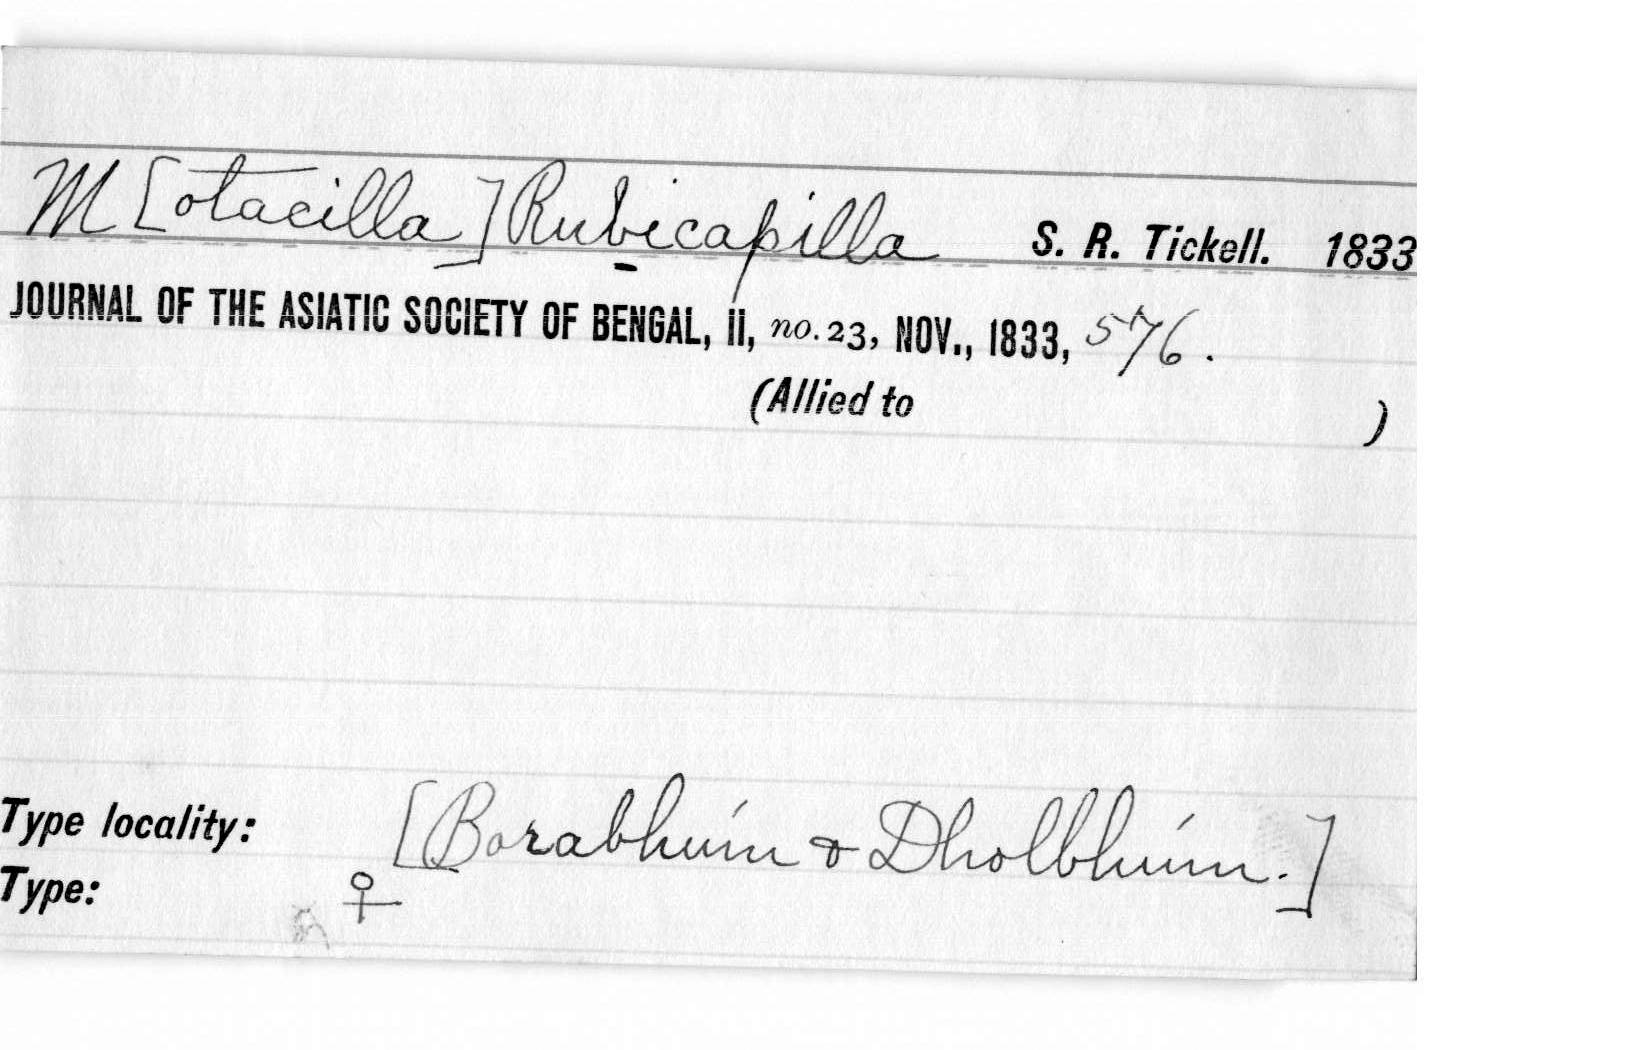 M[otacilla] Rubicapilla S. R. Tickell. 1833
JOURNAL OF THE ASIATIC SOCIETY OF BENGAL, ii, no. 23, NOV., 1833, 576.
(Allied to )
Type locality: [Borabhúm & Dholbhúm.]
Type: ♀